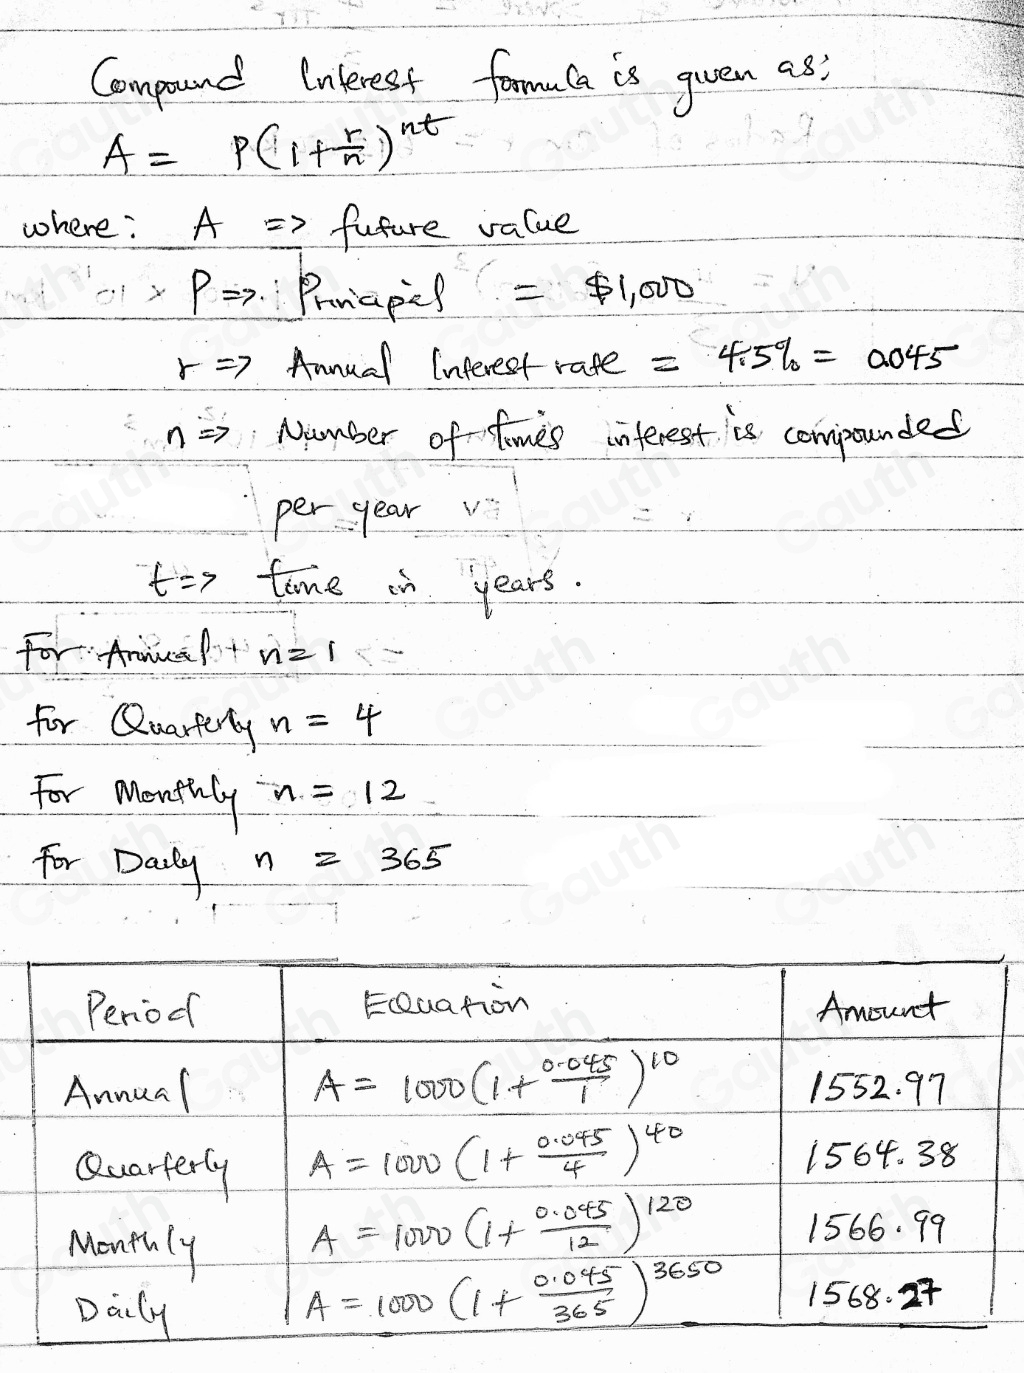 Compound Interest formula is given as;
A = P(1+r/n)^nt
where: A => future value
P => Principal = $1,000
r => Annual Interest rate = 4.5% = 0.045
n => Number of times interest is compounded
per year
t => time in years.
For Annual n=1
For Quarterly n = 4
For Monthly n = 12
For Daily n = 365
Period Equation Amount
Annual A = 1000(1+0.045/1)^10 1552.97
Quarterly A = 1000(1+0.045/4)^40 1564.38
Monthly A = 1000(1+0.045/12)^120 1566.99
Daily A = 1000(1+0.045/365)^3650 1568.27